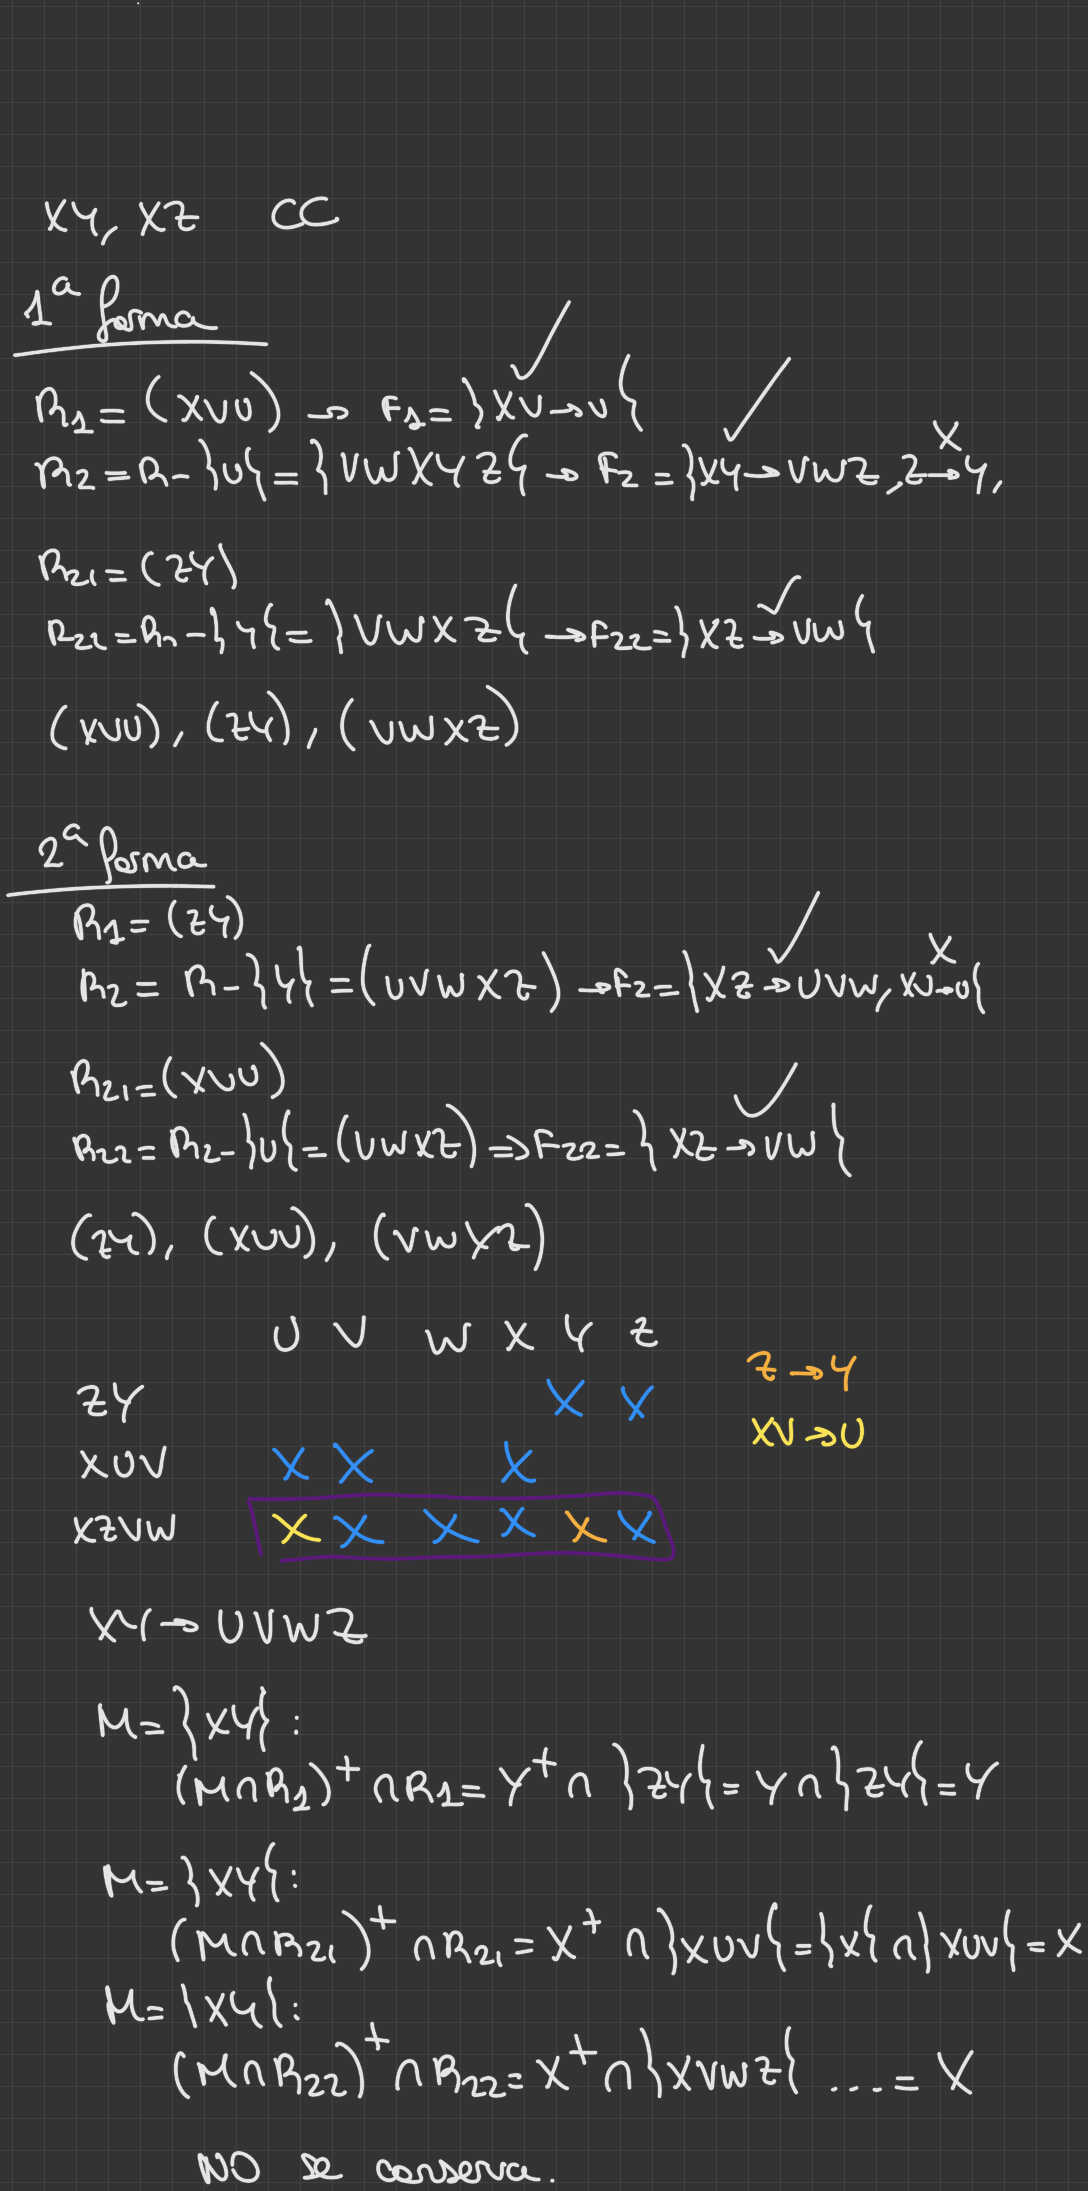 XY, XZ CC
1ª forma
R1 = (XVU) → F1 = }XV→U{ ✓
R2 = R-}U{ = }VWXYZ{ → F2 = }XY→VWZ, Z→Y, ✓ X
R21 = (ZY)
R22 = R2-}Y{ = }VWXZ{ → F22 = }XZ→VW{ ✓
(XVU), (ZY), (VWXZ)
2ª forma
R1 = (ZY)
R2 = R-}Y{ = (UVWXZ) → F2 = }XZ→UVW, XV→U{ ✓ X
R21 = (XUV)
R22 = R2-}U{ = (VWXZ) ⇒ F22 = { XZ→VW { ✓
(ZY), (XUV), (VWXZ)
U V W X Y Z
Z→Y
ZY X X
XV→U
XUV X X X
XZVW X X X X X X
XY→UVWZ
M = }XY{ :
(M∩R1)⁺ ∩ R1 = Y⁺ ∩ }ZY{ = Y ∩ }ZY{ = Y
M = }XY{ :
(M∩R21)⁺ ∩ R21 = X⁺ ∩ }XUV{ = }X{ ∩ } XUV{ = X
M = }XY{ :
(M∩R22)⁺ ∩ R22 = X⁺ ∩ }XVWZ{ ... = X
NO se conserva.